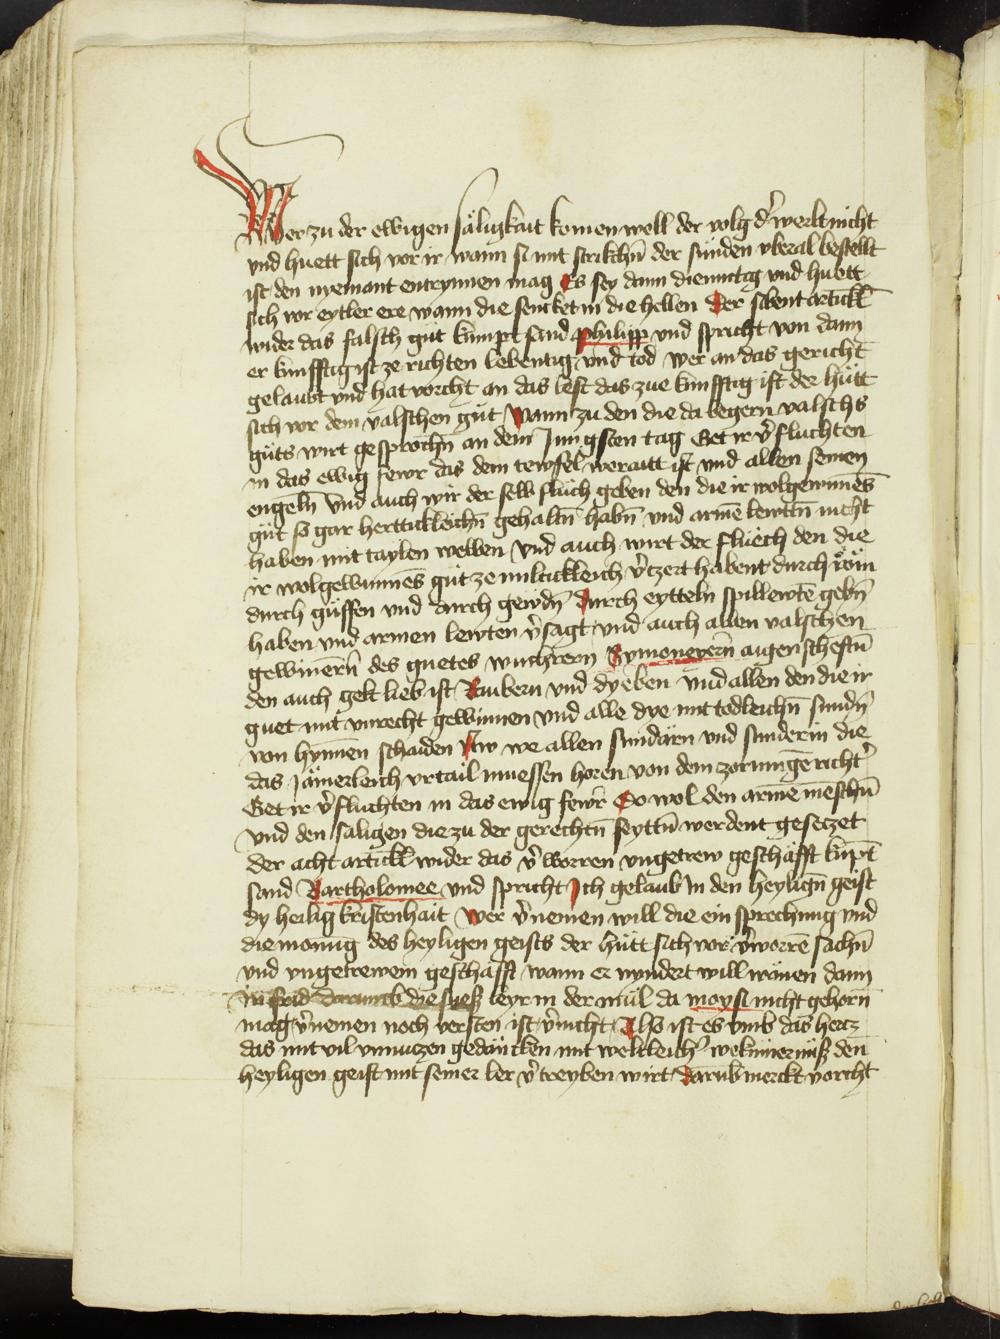 Wer zu der ewigen säligkait komen well der volg d' werlt nicht
vnd huett sich vor ir wann si mit strikchn̄ der sünden vberal bestellt
ist den nyemant entrynnen mag Es sey dann diemutig vnd huett
sich vor eytler ere wann die sencket in die hellen Der sibent artickl̄
wider das falsch gůt kumpt sand philipp vnd spricht von dann
er kunfftig ist ze richten lebentig vnd tod wer an das gericht
gelaubt vnd hat vorcht an das lest das zue kunfftig ist der hütt
sich vor dem valschen gůt Wann zu den die da begern valschs
gůts wirt gesprochn̄ an dem Jungsten tag Get ir v'fluchten
in das ewig fewr das dem tewfel weraitt ist vnd allen seinen
engeln̄ vnd auch wir der selb flůch geben den die ir wolgewunnēs
gůt so gar hertticklichn̄ gehaltn̄ habn̄ vnd armē lewttn̄ nicht
haben mit taylen wellen Vnd auch wirt der fluech den die
ir wolgewunnēs gůt ze milticklich v'tzert habent durch
durch güssen vnd durch gewdn̄ Durch eytteln spillewtē gebn̄
haben vnd armen lewten v'sagt vnd auch allen valschen
gewinnern̄ des guetes wuchrern Symoneyern̄ aigen schefftn̄
den auch gelt lieb ist Raubern vnd dyeben vnd allen den die ir
guet mit vnrecht gewinnen vnd alle dye mit todleichn̄ sundn̄
von hynnen schaiden Aw we allen sundärn vnd sunderin die
das Jämerleich vrtail muessen horen von dem zornigē richt'
Get ir v'fluchten in das ewig fewr So wol den armē mēschn̄
vnd den säligen die zu der gerechtn̄ seyttn̄ werdent gesetzet
der acht artickl̄ wider das v'worren vngetrew geschäfft kūpt
sand Bartholomee vnd spricht Ich gelaub in den heylign̄ geist
dy heilig kristenhait Wer v'nemen will die ein sprechung vnd
die monūg des heyligen geists der hütt sich vor v'worrē sachn̄
vnd vngetrewem geschäfft wann er nyndert will wanen dann
in frid darumb die suess leyr in der mül da moysi nicht gehorn̄
mag v'nemen noch versten ist v'nicht Also ist es vmb das hertz
das mit vil vnnutzen gedäncken mit weltleich' wekumernüß den
heyligen geist mit seiner ler v'treyben wirt Darub merckt vorcht